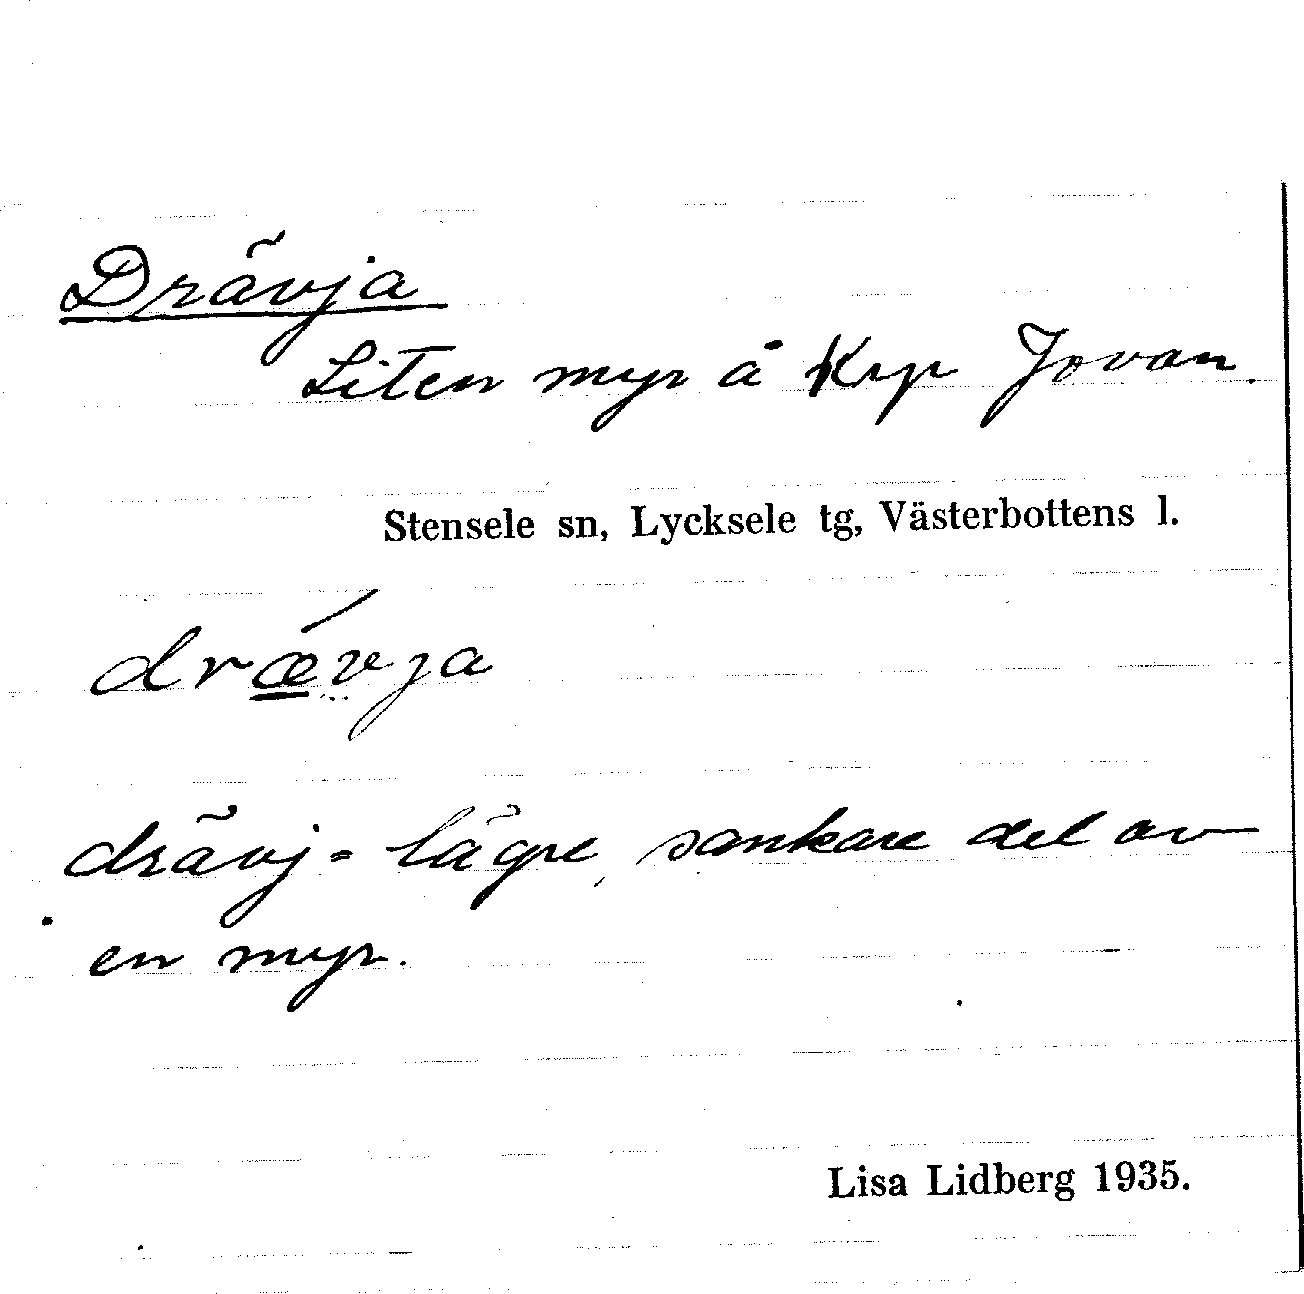 Drävja
Liten myr å Krp Jovan.
Stensele sn, Lycksele tg, Västerbottens l.
drǽvja
drävj = lägre, sankare del av
en myr.
Lisa Lidberg 1935.